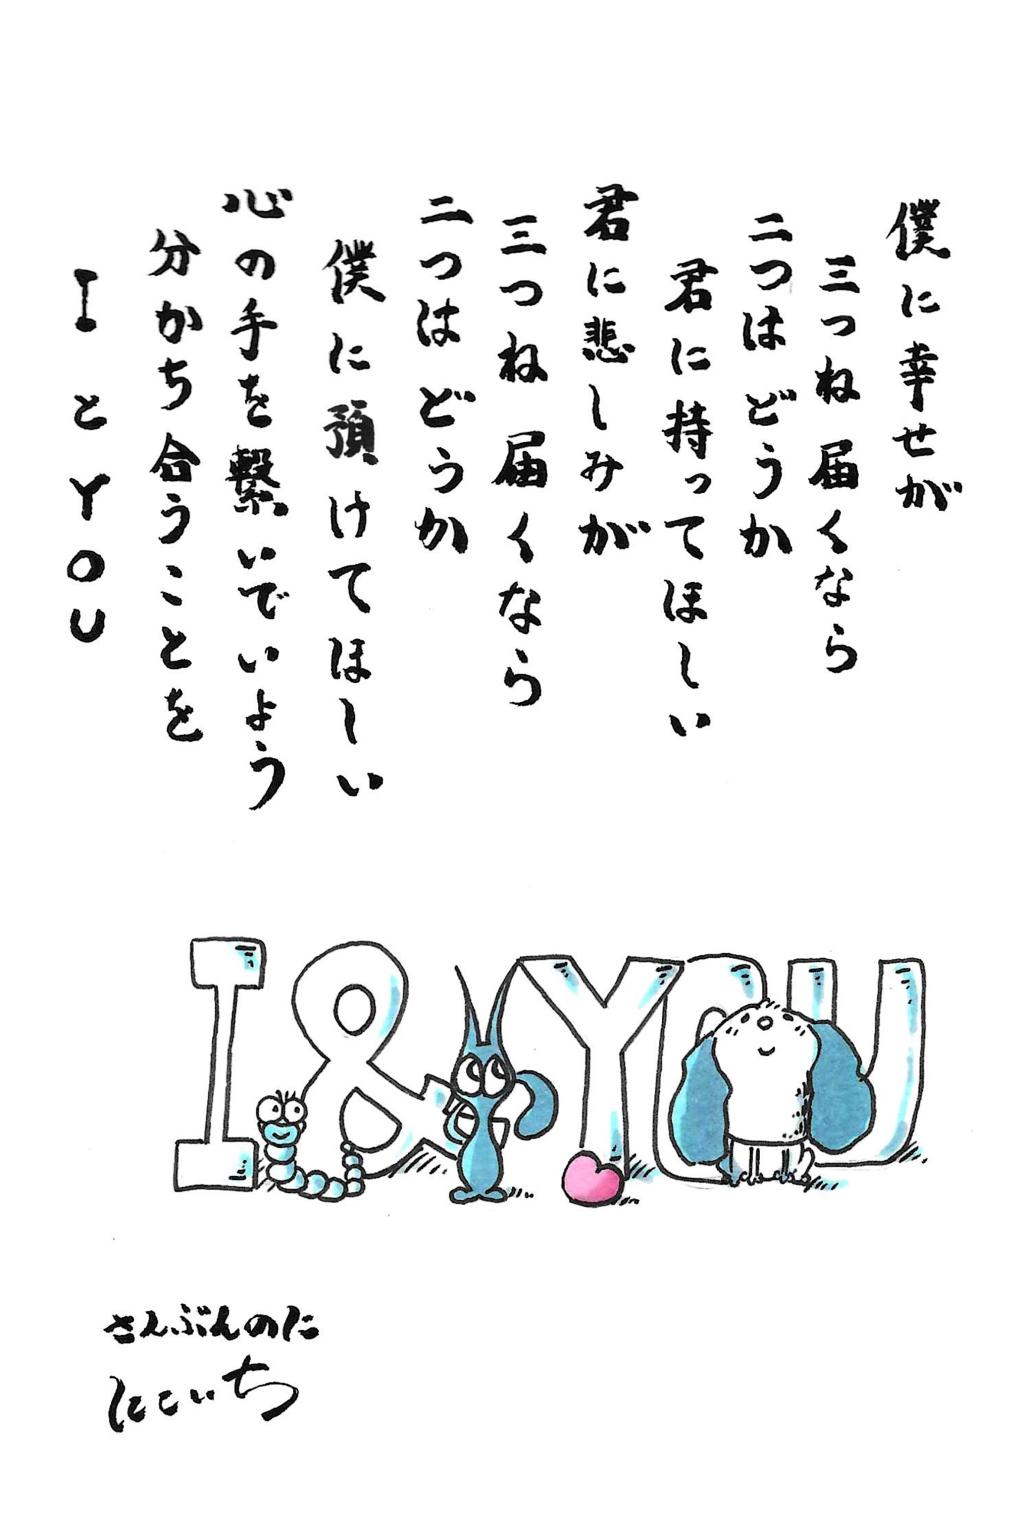 僕に幸せが
三つね届くなら
二つはどうか
君に持ってほしい
君に悲しみが
三つね届くなら
二つはどうか
僕に預けてほしい
心の手を繋いでいよう
分かち合うことを
I と YOU
I & YOU
さんぶんのに
にこいち